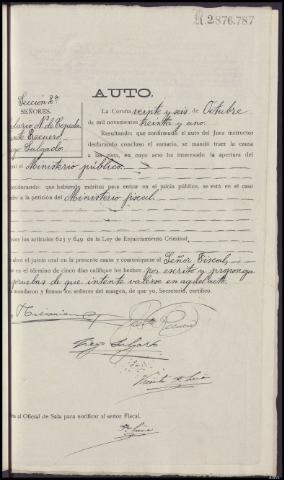 2876.787
AUTO.
Sección 2ª
SEÑORES.
La Coruña veinte y seis de Octubre
de mil novecientos treinta y uno.
Resultando: que confirmado el auto del Juez instructor
Salgado.
declarando concluso el sumario, se mandó traer la causa
a la vista, en cuyo acto ha interesado la apertura del
Ministerio público.
Considerando: que habiendo méritos para entrar en el juicio público, se está en el caso
a la petición del Ministerio fiscal.
los artículos 623 y 649 de la Ley de Enjuiciamiento Criminal,
el juicio oral en la presente causa y comuníquese al Señor Fiscal,
en el término de cinco días califique los hechos por escrito y proponga
pruebas de que intente valerse en aquel acto.
mandaron y firman los señores del margen, de que yo, Secretario, certifico.
al Oficial de Sala para notificar al señor Fiscal.